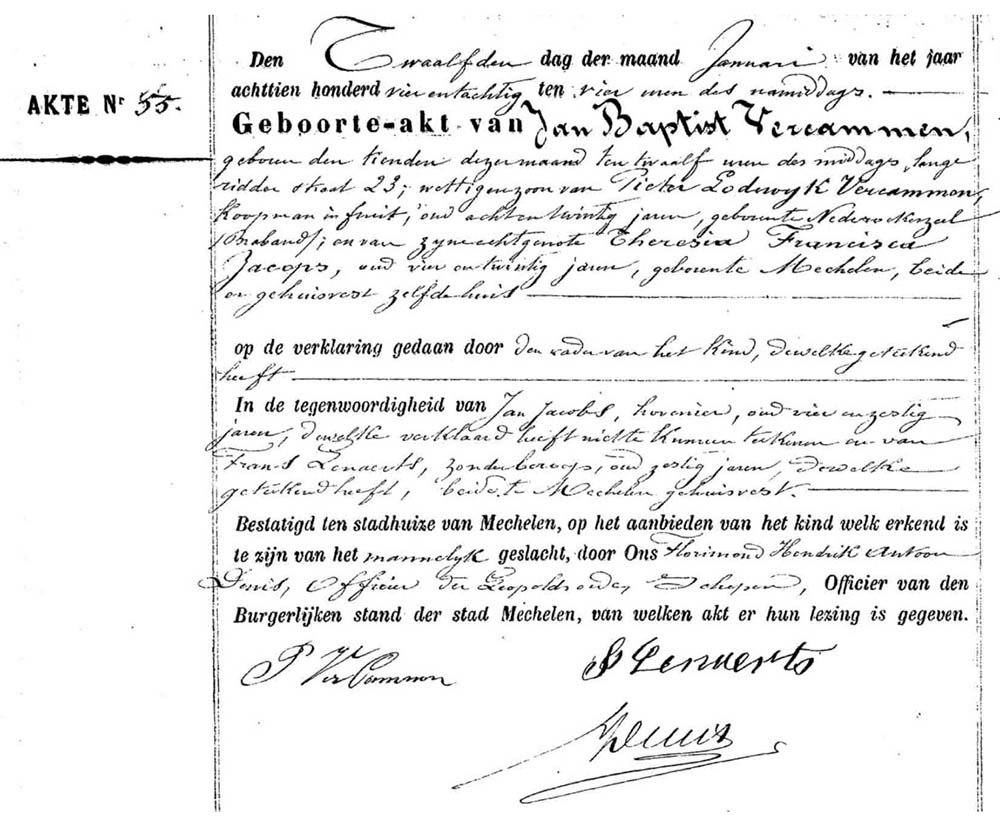 Den Twaalfden dag der maand Januari van het jaar
achttien honderd vier entachtig ten vier uren des namiddags.
AKTE Nr 55.
Geboorte-akt van Jan Baptist Vercammen,
geboren den tienden dezer maand ten twaalf uren des middags, lange
ridder straat 23; wettigen zoon van Pieter Lodewyk Vercammen,
koopman in fruit, oud acht en twintig jaren, geboren te Nederockerzeel
(Braband); en van zyne echtgenote Theresia Francisca
Jacops, oud vier en twintig jaren, geboren te Mechelen, beide
er gehuisvest zelfde huis
op de verklaring gedaan door den vader van het kind, dewelke geteekend
heeft
In de tegenwoordigheid van Jan Jacobs, hovenier, oud vier en zestig
jaren, dewelke verklaard heeft niet te kunnen teekenen en van
Frans Lenaerts, zonder beroep, oud zestig jaren, dewelke
geteekend heeft, beide te Mechelen gehuisvest.
Bestatigd ten stadhuize van Mechelen, op het aanbieden van het kind welk erkend is
te zijn van het mannelyk geslacht, door Ons Florimond Hendrik Antoon
Denis, Officier der Leopoldsorde, Schepen, Officier van den
Burgerlijken stand der stad Mechelen, van welken akt er hun lezing is gegeven.
P VerCammen
Lenaerts
Denis